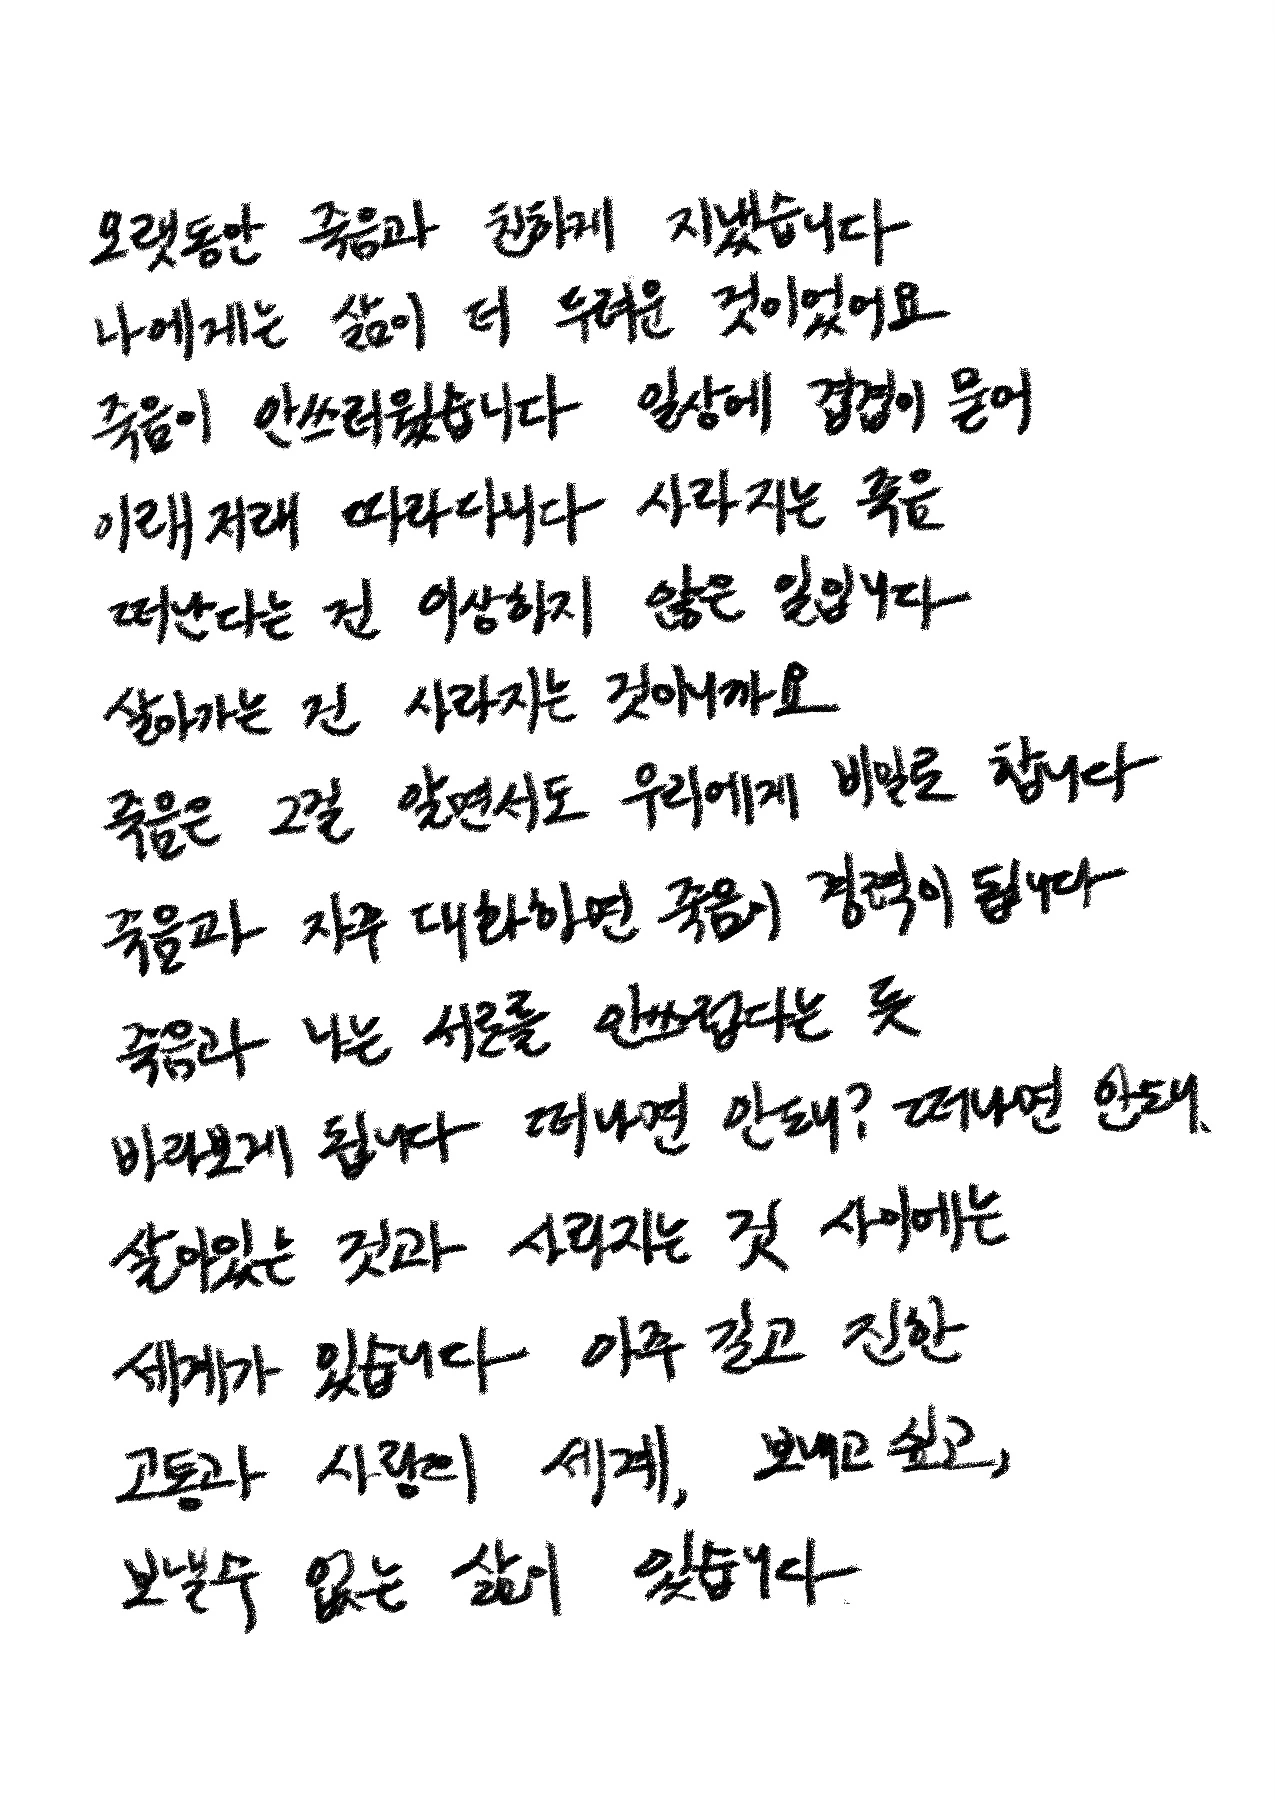 오랫동안 죽음과 친하게 지냈습니다
나에게는 삶이 더 두려운 것이었어요
죽음이 안쓰러웠습니다 일상에 겹겹이 묻어
이래저래 따라다니다 사라지는 죽음
떠난다는 건 이상하지 않은 일입니다
살아가는 건 사라지는 것이니까요
죽음은 그걸 알면서도 우리에게 비밀로 합니다
죽음과 자주 대화하면 죽음이 경력이 됩니다
죽음과 나는 서로를 안쓰럽다는 듯
바라보게 됩니다 떠나면 안돼? 떠나면 안돼.
살아있는 것과 사라지는 것 사이에는
세계가 있습니다 아주 길고 진한
고통과 사랑의 세계, 보내고 싶고,
보낼수 없는 삶이 있습니다